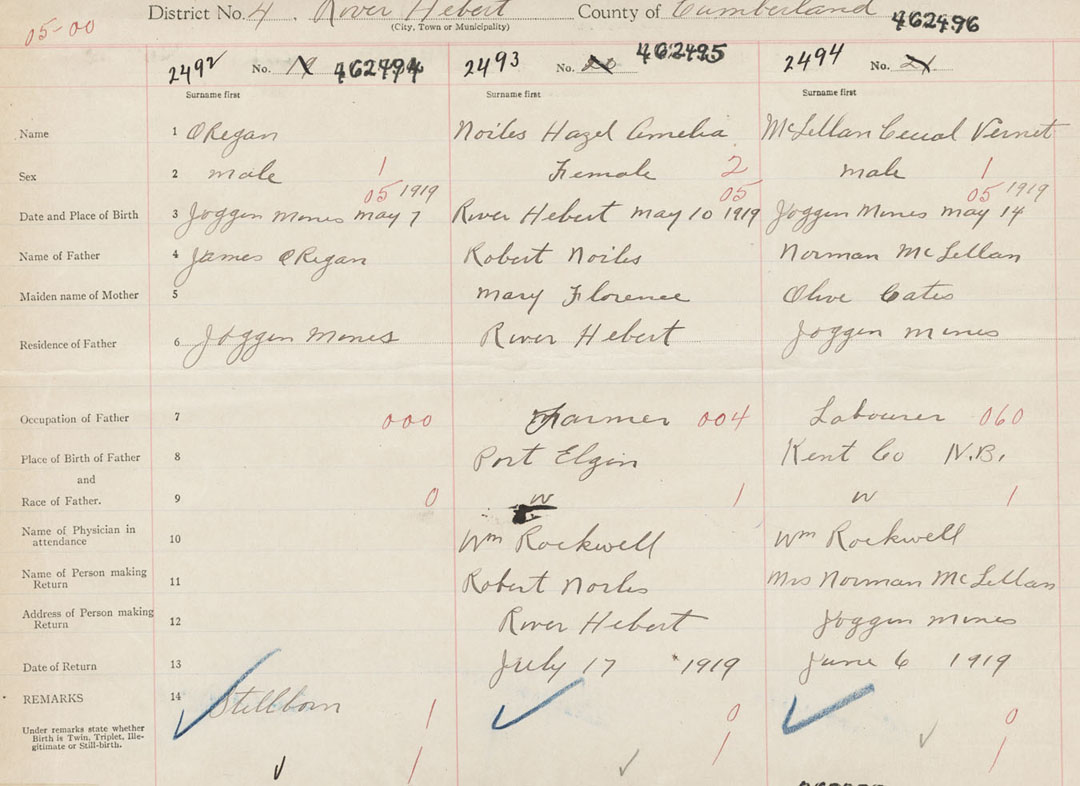 District No. 4. River Hebert County of Cumberland
(City, Town or Municipality)
05-00
462496
2492 No. 19 462494 2493 No. 20 462495 2494 No. 21
Surname first Surname first Surname first
Name 1 O'Regan Noiles Hazel Amelia McLellan Vernet
Sex 2 male 1 Female 2 male 1
05 1919 05 05 1919
Date and Place of Birth 3 Joggin Mines May 7 River Hebert may 10 1919 Joggin Mines may 14
Name of Father 4 James O'Regan Robert Noiles Norman McLellan
Maiden name of Mother 5 Mary Florence Olive Cates
Residence of Father 6 Joggin Mines River Hebert Joggin mines
Occupation of Father 7 000 Farmer 004 Labourer 060
Place of Birth of Father 8 Port Elgin Kent Co N.B.
and
Race of Father. 9 0 w 1 w 1
Name of Physician in
attendance 10 Wm Rockwell Wm Rockwell
Name of Person making
Return 11 Robert Noiles Mrs Norman McLellan
Address of Person making
Return 12 River Hebert Joggin mines
Date of Return 13 July 17 1919 June 6 1919
REMARKS 14 Stillborn 1 0 0
Under remarks state whether
Birth is Twin, Triplet, Ille-
gitimate or Still-birth.
1 1 1